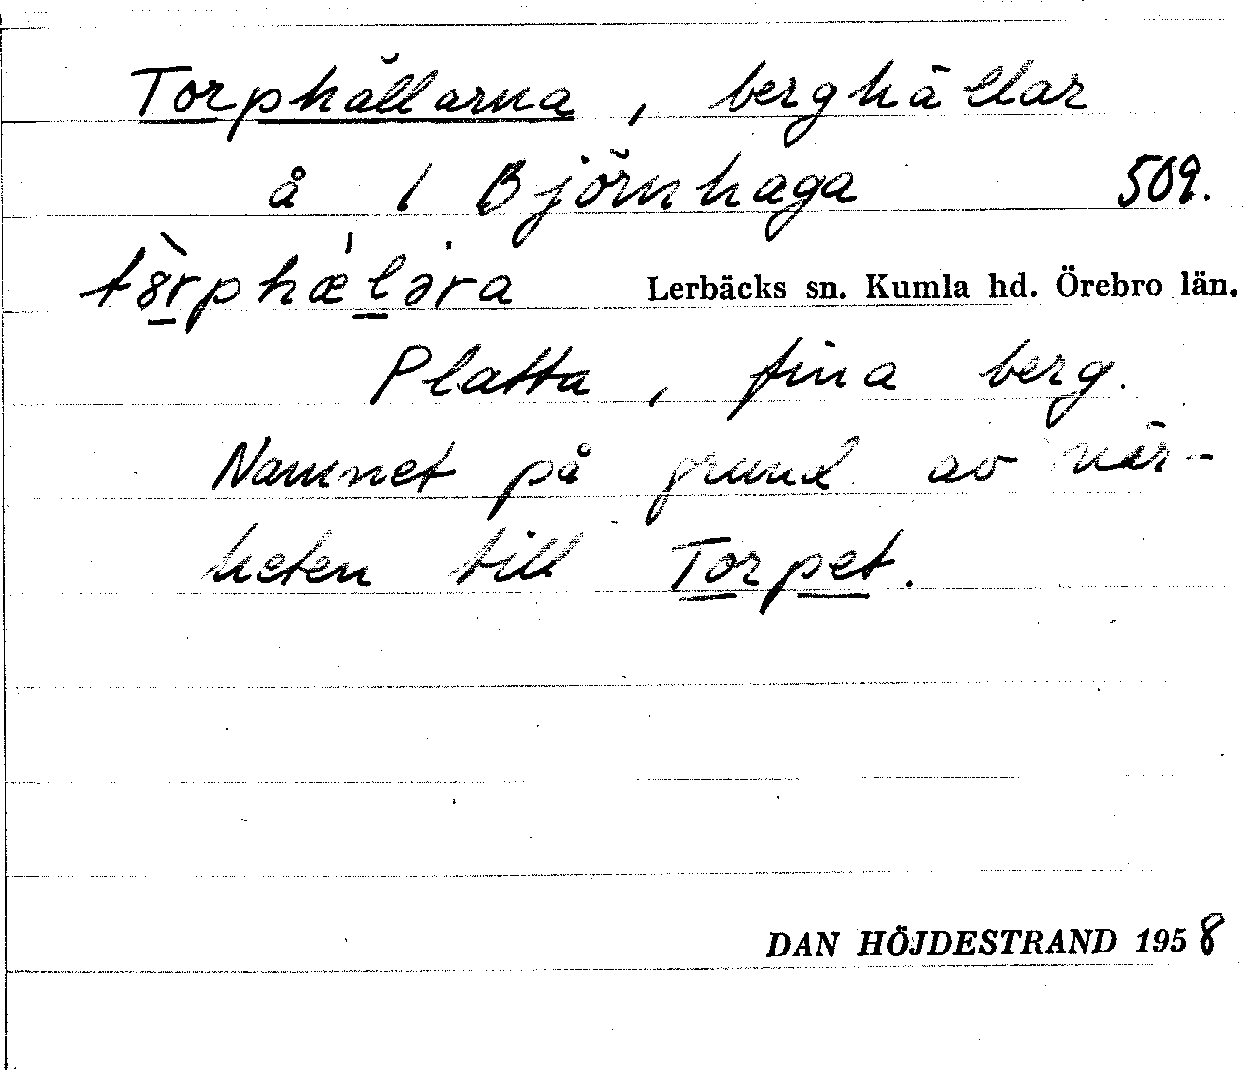 Torphällarna, berghällar
å 1 Björnhaga 509.
Lerbäcks sn. Kumla hd. Örebro län.
Platta, fina berg.
Namnet på grund av när-
heten till Torpet.
DAN HÖJDESTRAND 1958